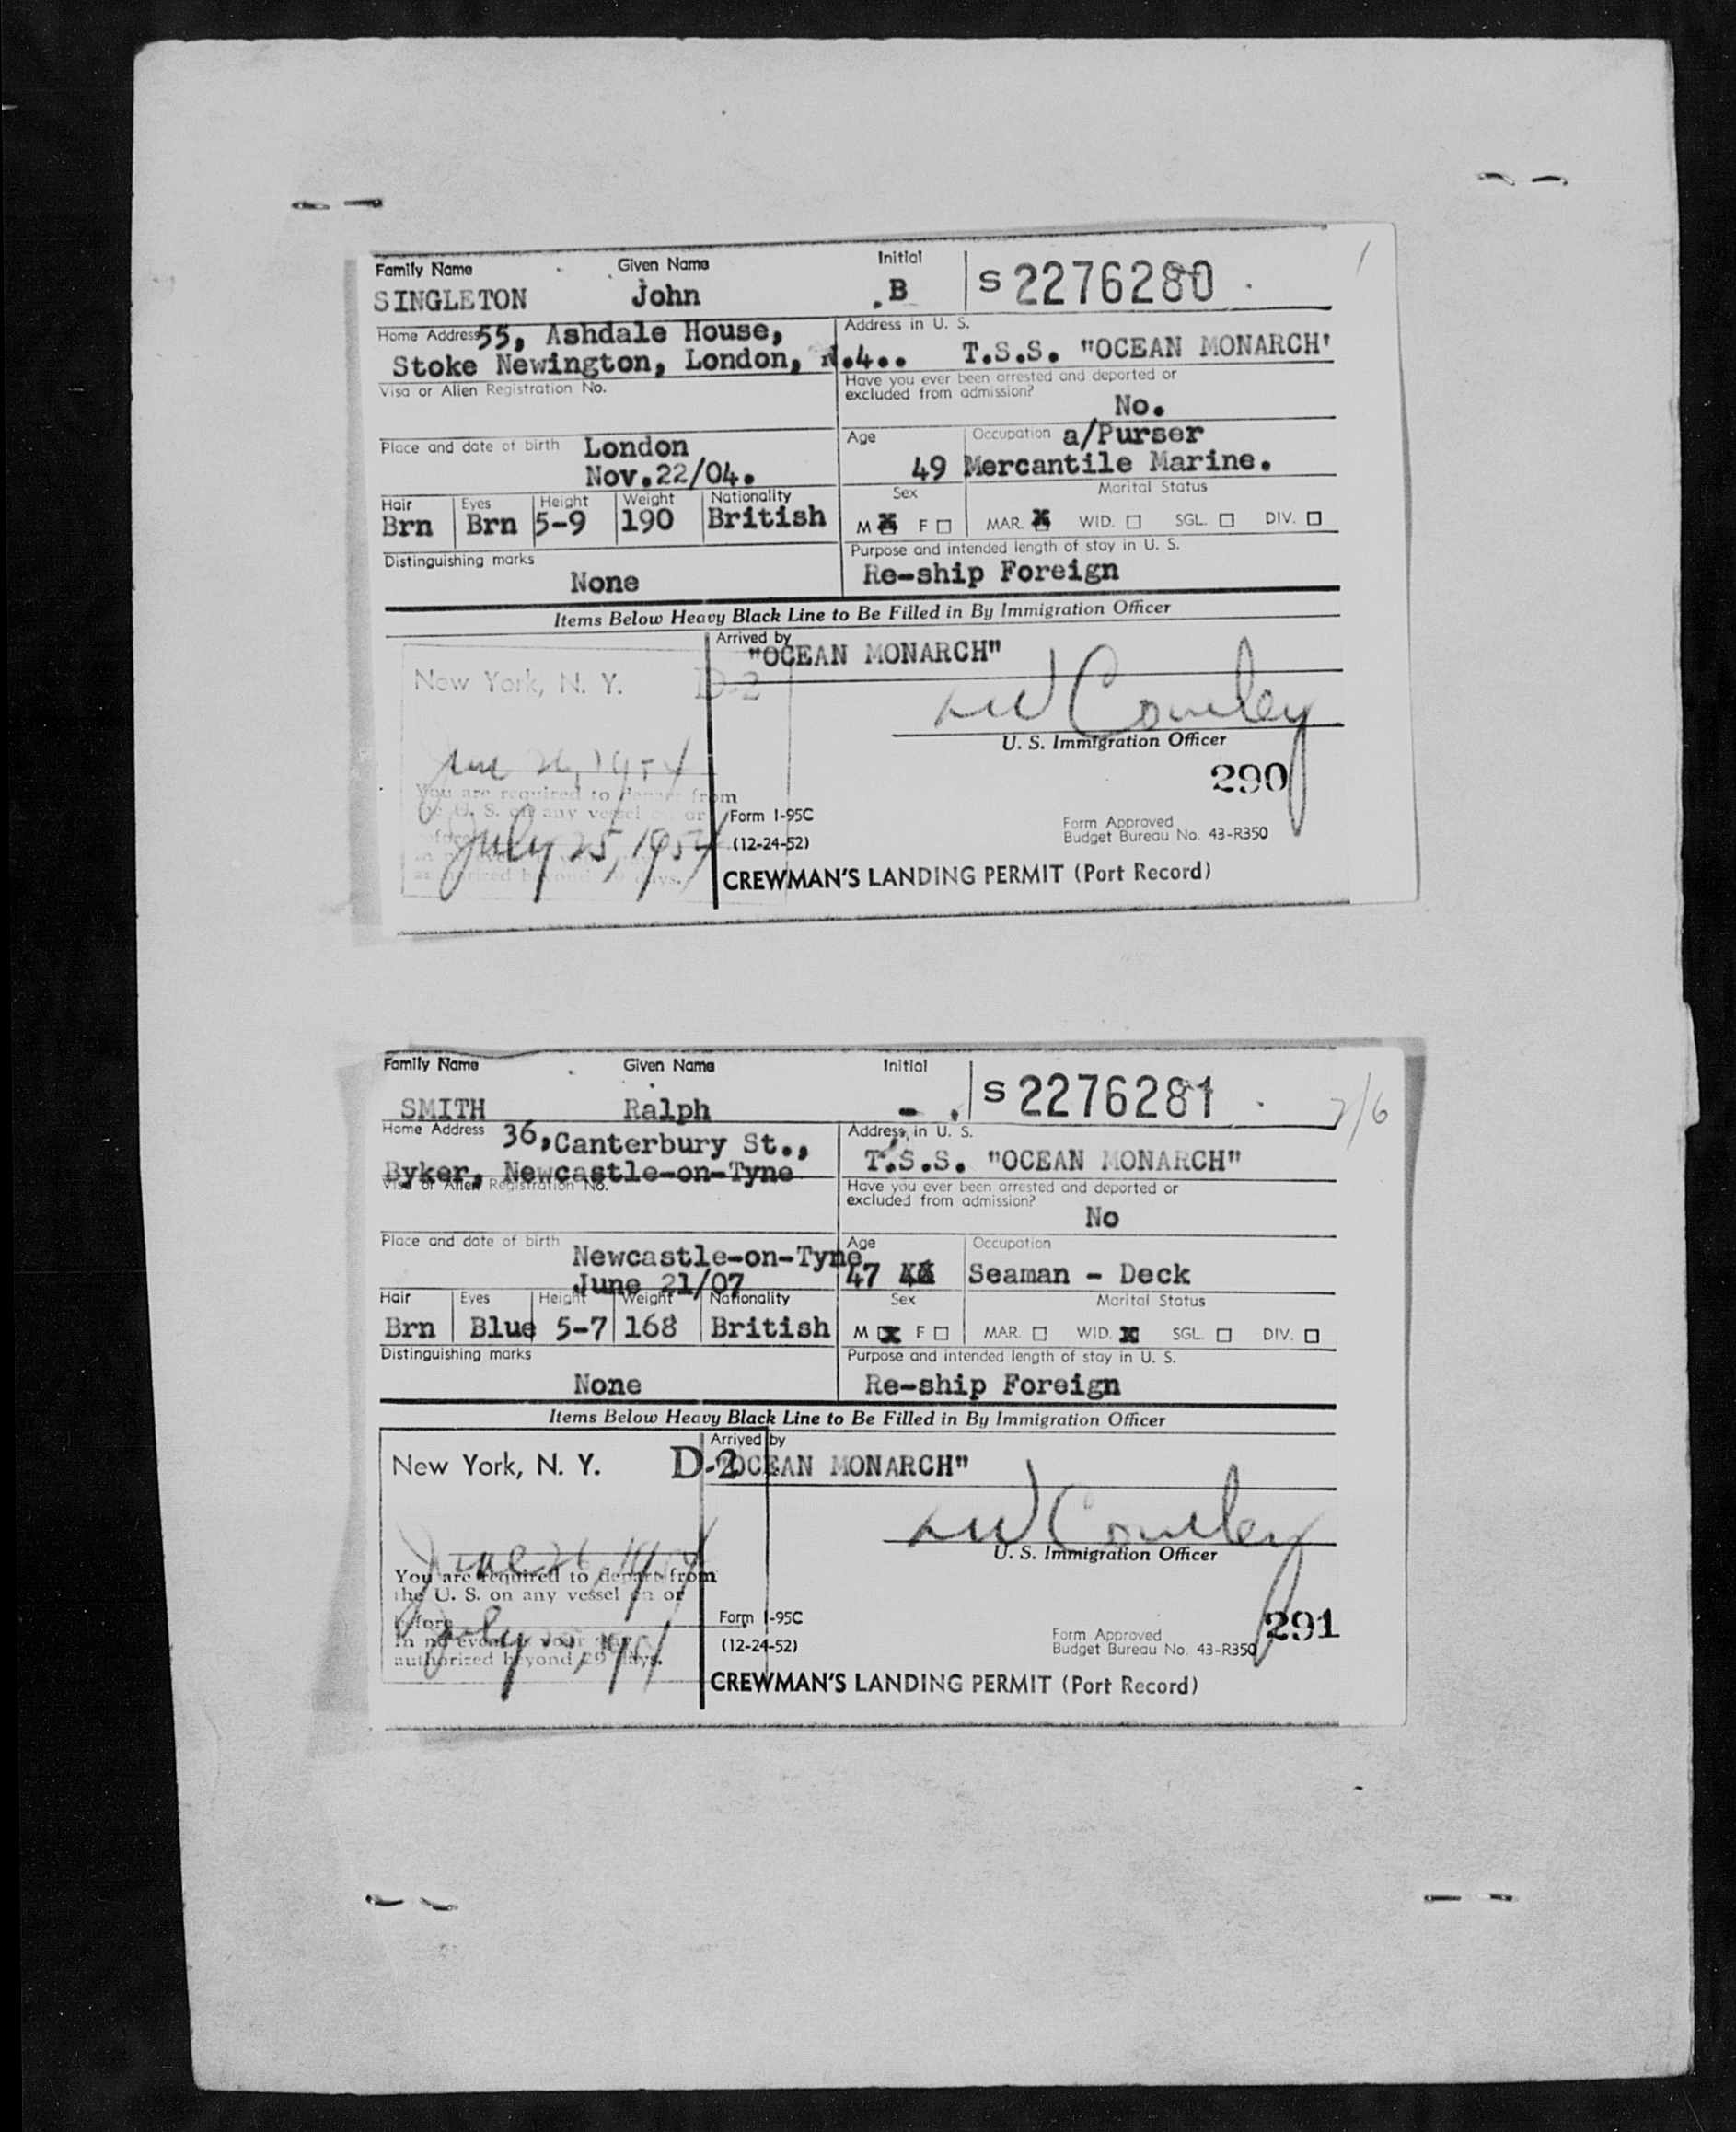 Family Name Given Name Initial
SINGLETON John .B S 2276280
Home Address 55, Ashdale House,
Stoke Newington, London, N.4..
Address in U. S.
T.S.S. "OCEAN MONARCH'
Visa or Alien Registration No.
Have you ever been arrested and deported or
excluded from admission?
No.
Place and date of birth London
Nov.22/04.
Age 49
Occupation a/Purser
Mercantile Marine.
Hair Eyes Height Weight Nationality
Brn Brn 5-9 190 British
Sex Marital Status
M X F MAR. X WID. SGL. DIV.
Distinguishing marks
None
Purpose and intended length of stay in U. S.
Re-ship Foreign
Items Below Heavy Black Line to Be Filled in By Immigration Officer
Arrived by
"OCEAN MONARCH"
New York, N. Y. D-2
U. S. Immigration Officer
290
You are required to depart from
the U. S. on any vessel on or
July 25, 1954
Form I-95C
(12-24-52)
Form Approved
Budget Bureau No. 43-R350
CREWMAN'S LANDING PERMIT (Port Record)
Family Name Given Name Initial
SMITH Ralph - . S 2276281
7/6
Home Address 36, Canterbury St.,
Byker, Newcastle-on-Tyne
Address in U. S.
T.S.S. "OCEAN MONARCH"
Visa or Alien Registration No.
Have you ever been arrested and deported or
excluded from admission?
No
Place and date of birth
Newcastle-on-Tyne
June 21/07
Age 47
Occupation
Seaman - Deck
Hair Eyes Height Weight Nationality
Brn Blue 5-7 168 British
Sex Marital Status
M X F MAR. WID. X SGL. DIV.
Distinguishing marks
None
Purpose and intended length of stay in U. S.
Re-ship Foreign
Items Below Heavy Black Line to Be Filled in By Immigration Officer
Arrived by
"OCEAN MONARCH"
New York, N. Y. D-2
U. S. Immigration Officer
June 26, 1954
You are required to depart from
the U. S. on any vessel on or
before
July 25, 1954
In no event is your stay
authorized beyond 29 days.
Form I-95C
(12-24-52)
Form Approved
Budget Bureau No. 43-R350
291
CREWMAN'S LANDING PERMIT (Port Record)